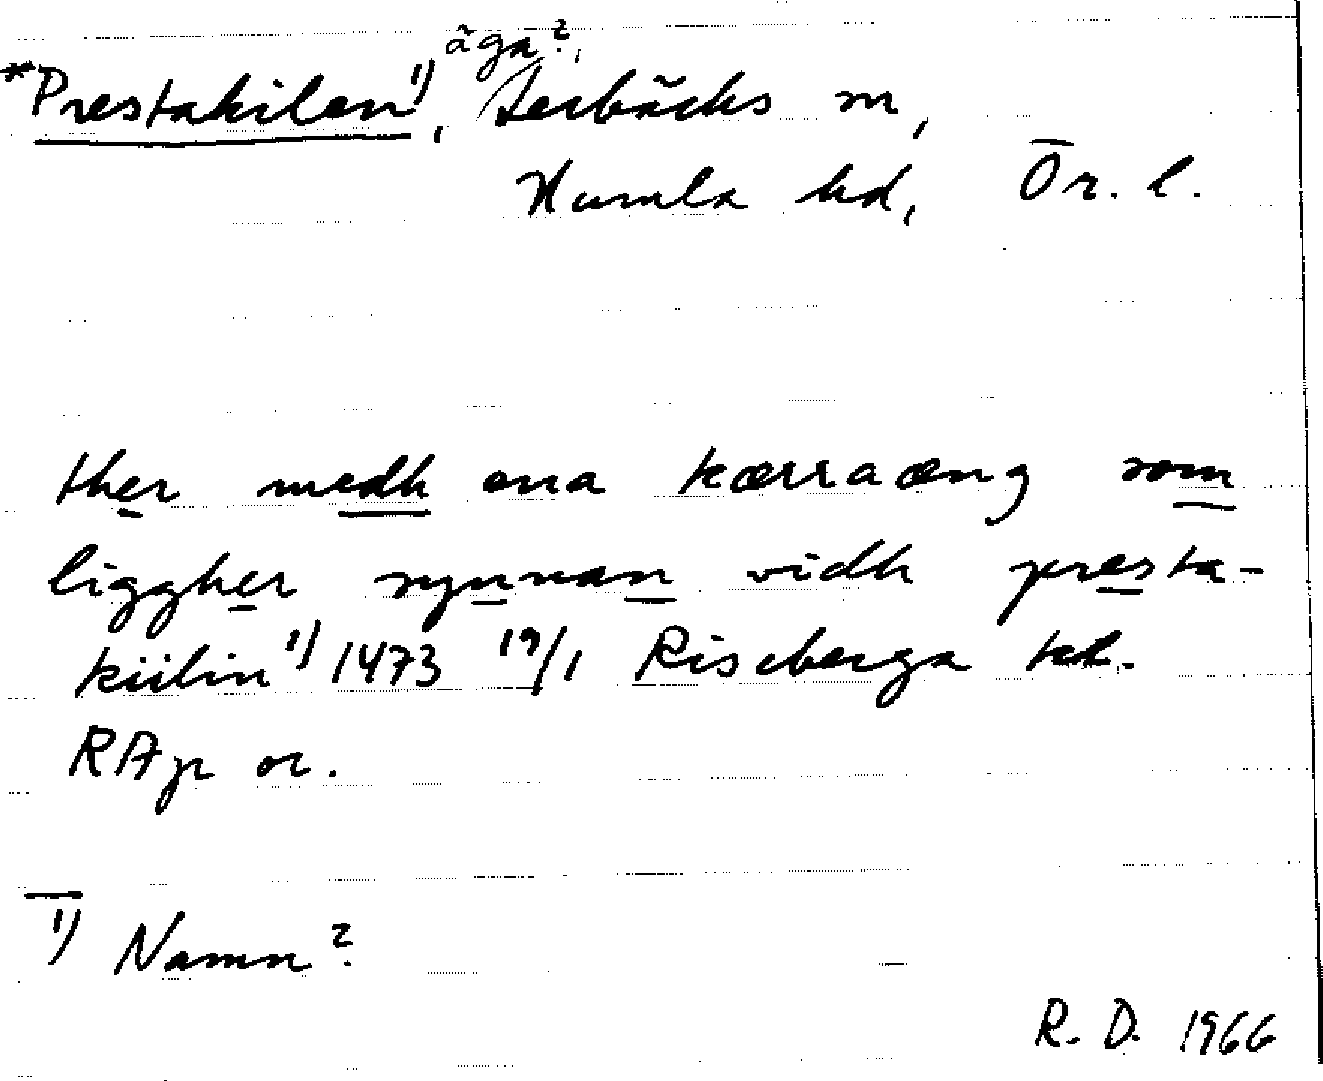 äga?
*Prestakilen¹⁾, Lerbäcks sn,
Kumla hd, Ör. l.
ther medh ena kærraæng som
liggher synnan vidh presta-
kiilin¹⁾ 1473 19/1 Riseberga kl.
RAp or.
¹⁾ Namn?
R. D. 1966